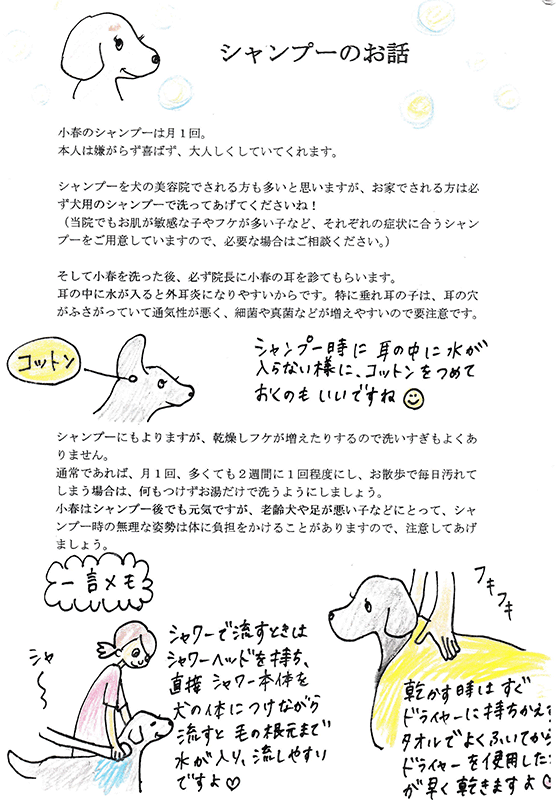 シャンプーのお話
小春のシャンプーは月１回。
本人は嫌がらず喜ばず、大人しくしていてくれます。
シャンプーを犬の美容院でされる方も多いと思いますが、お家でされる方は必
ず犬用のシャンプーで洗ってあげてくださいね！
（当院でもお肌が敏感な子やフケが多い子など、それぞれの症状に合うシャン
プーをご用意していますので、必要な場合はご相談ください。）
そして小春を洗った後、必ず院長に小春の耳を診てもらいます。
耳の中に水が入ると外耳炎になりやすいからです。特に垂れ耳の子は、耳の穴
がふさがっていて通気性が悪く、細菌や真菌などが増えやすいので要注意です。
コットン
シャンプー時に耳の中に水が
入らない様に、コットンをつめて
おくのもいいですね
シャンプーにもよりますが、乾燥しフケが増えたりするので洗いすぎもよくあ
りません。
通常であれば、月１回、多くても２週間に１回程度にし、お散歩で毎日汚れて
しまう場合は、何もつけずお湯だけで洗うようにしましょう。
小春はシャンプー後でも元気ですが、老齢犬や足が悪い子などにとって、シャ
ンプー時の無理な姿勢は体に負担をかけることがありますので、注意してあげ
ましょう。
一言メモ
シャ〜
シャワーで流すときは
シャワーヘッドを持ち、
直接シャワー本体を
犬の体につけながら
流すと毛の根元まで
水が入り、流しやすい
ですよ♡
フキ
フキ
乾かす時はすぐ
ドライヤーに持ちかえ
タオルでよくふいてから
ドライヤーを使用した
が早く乾きますよ